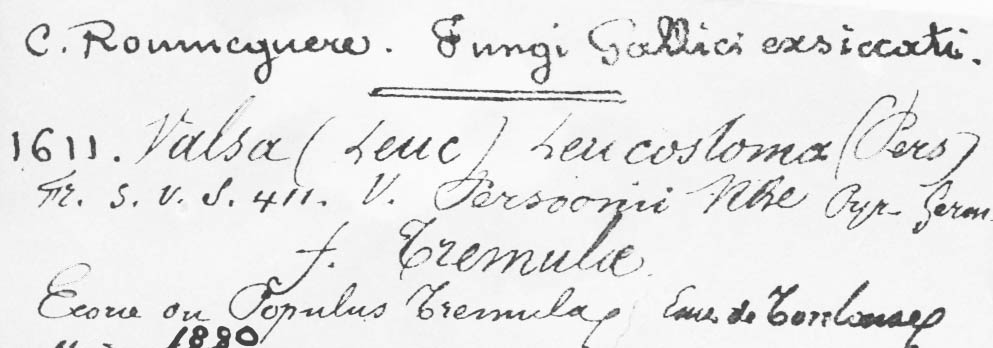 C. Roumeguere. Fungi Gallici exsiccati.
1611. Valsa (Leuc) Leucostoma (Pers)
Fr. S. V. S. 411. V. Persoonii Nke Pyr. Germ.
f. Tremulæ
Ecorce du Populus Tremula Env. de Toulouse
1880